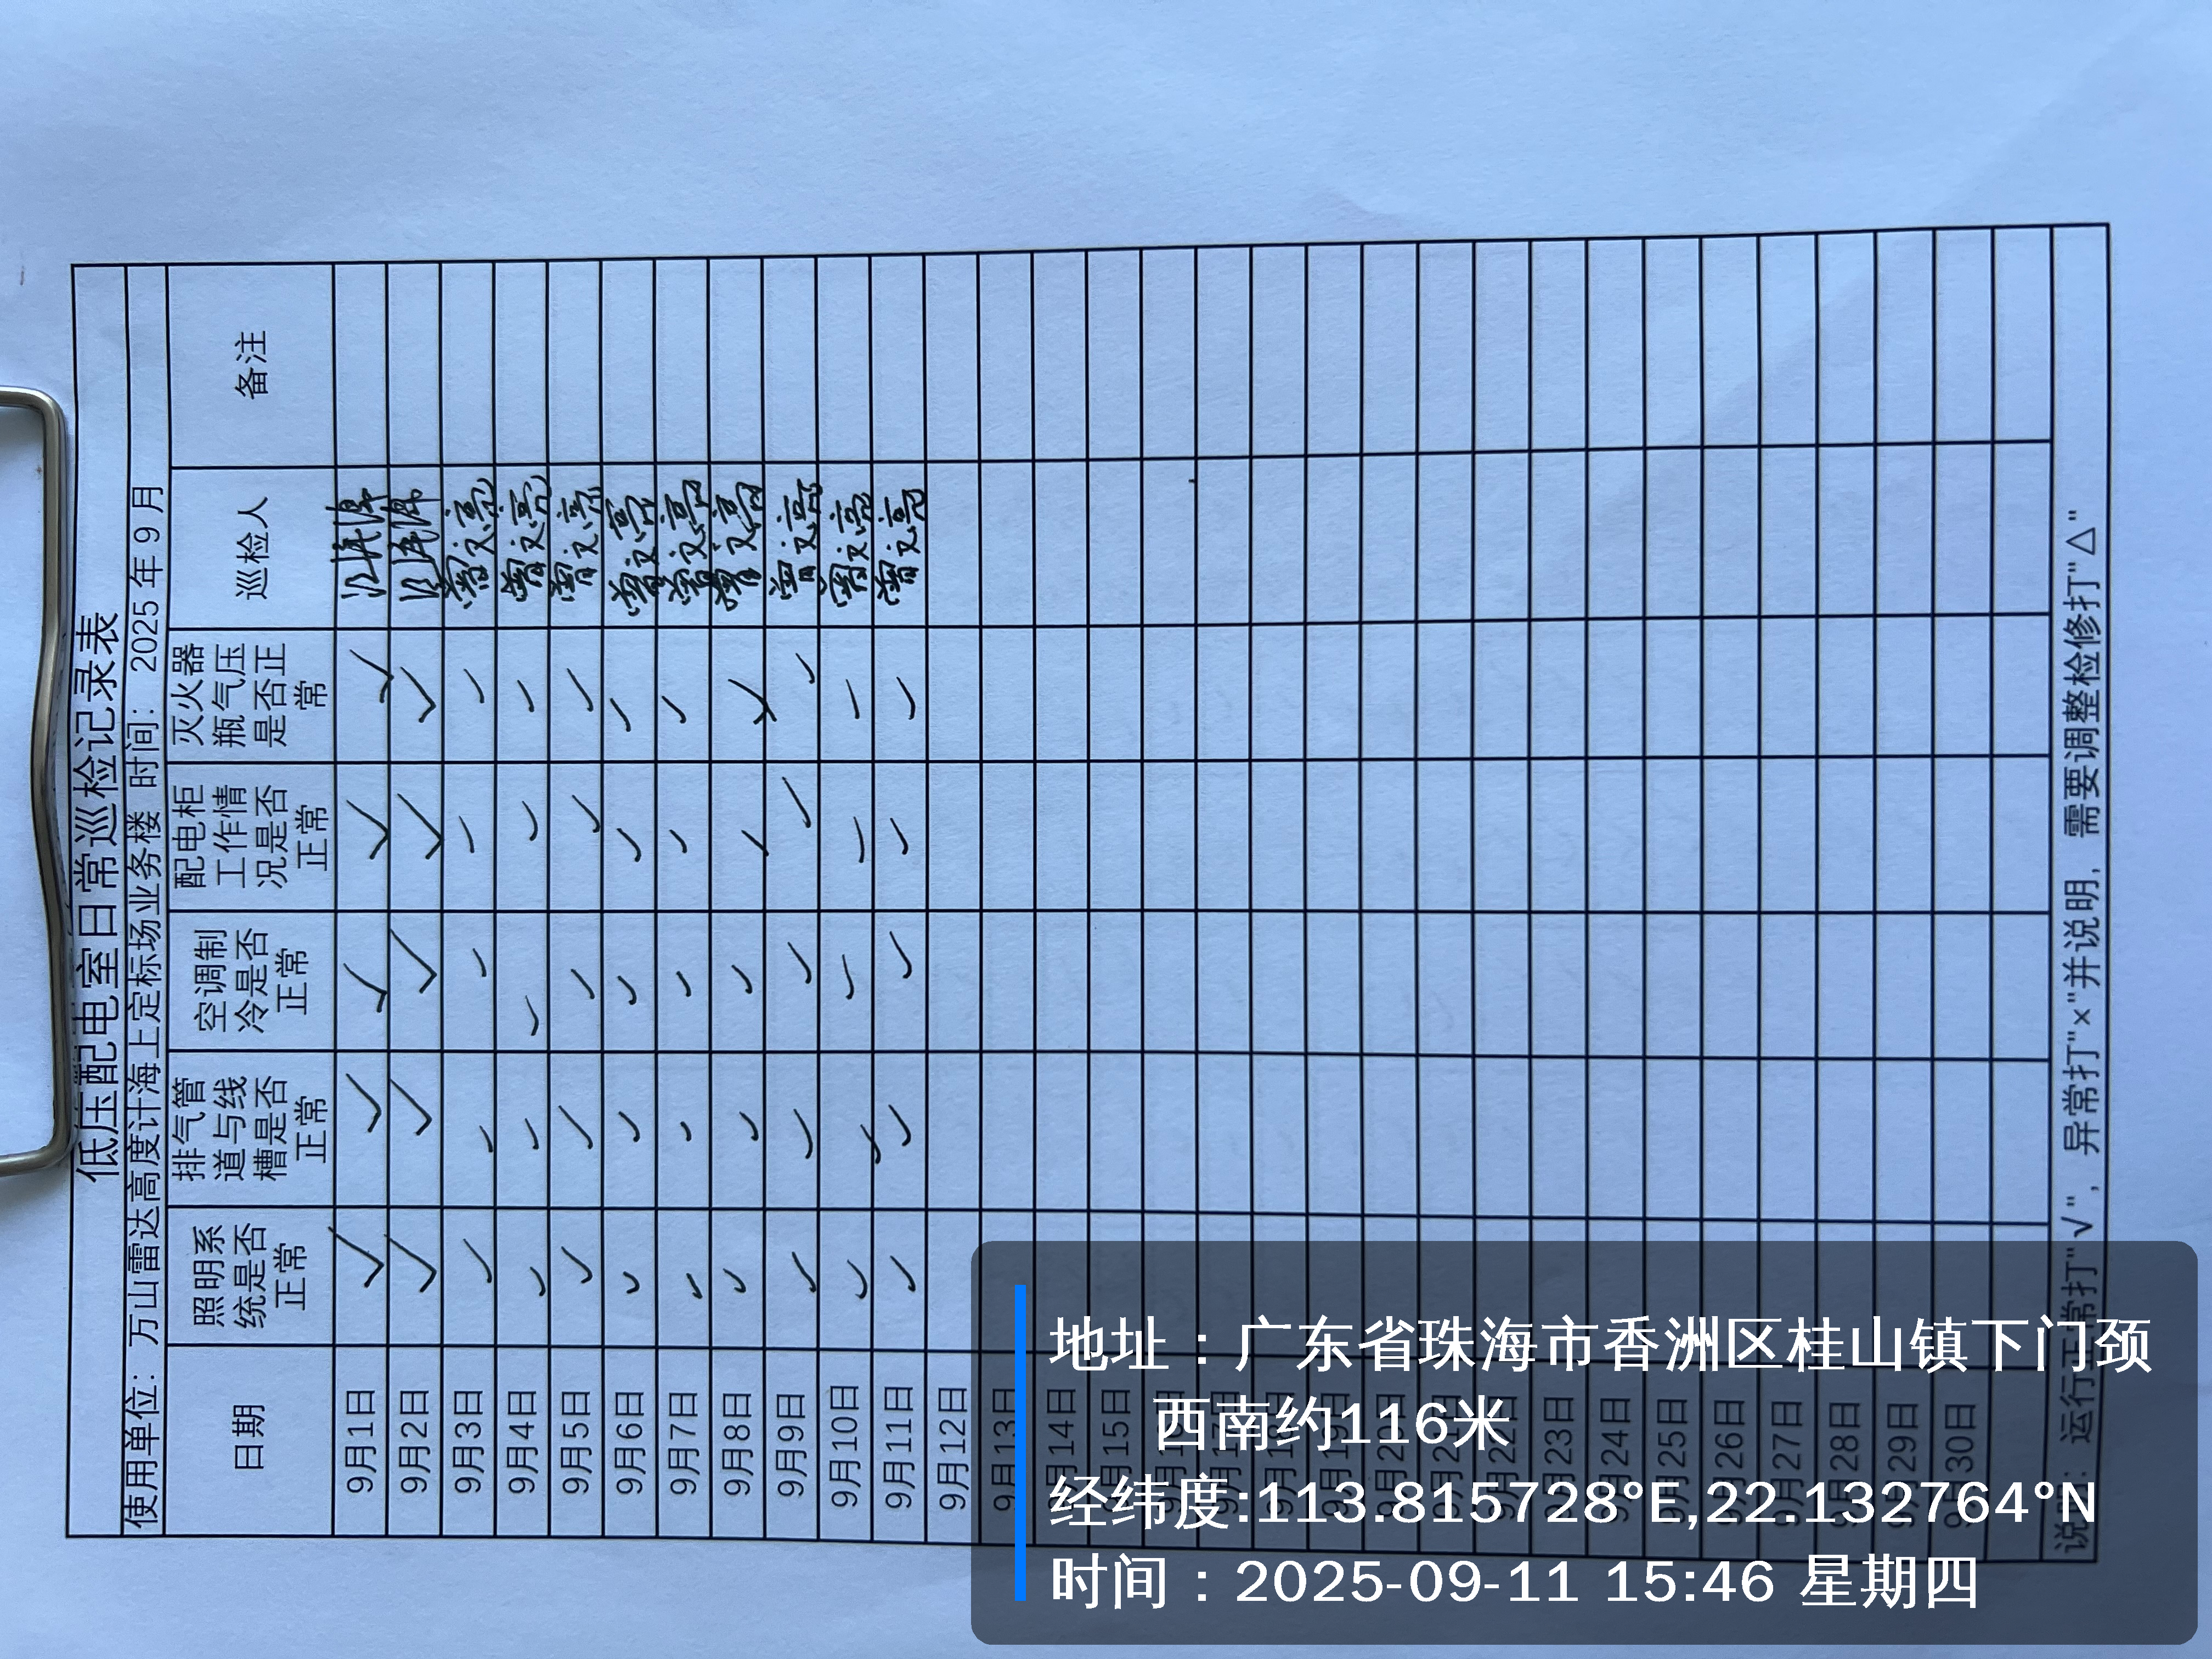 低压配电室日常巡检记录表
使用单位：万山雷达高度计海上定标场业务楼 时间：2025年9月
日期 照明系统是否正常 排气管道与线槽是否正常 空调制冷是否正常 配电柜工作情况是否正常 灭火器瓶气压是否正常 巡检人 备注
9月1日 ✓ ✓ ✓ ✓ ✓
9月2日 ✓ ✓ ✓ ✓ ✓
9月3日 ✓ ✓ ✓ ✓ ✓ 曾文亮
9月4日 ✓ ✓ ✓ ✓ ✓ 曾文亮
9月5日 ✓ ✓ ✓ ✓ ✓ 曾文亮
9月6日 ✓ ✓ ✓ ✓ ✓ 曾文亮
9月7日 ✓ ✓ ✓ ✓ ✓ 曾文亮
9月8日 ✓ ✓ ✓ ✓ ✓ 曾文亮
9月9日 ✓ ✓ ✓ ✓ ✓ 曾文亮
9月10日 ✓ ✓ ✓ ✓ ✓ 曾文亮
9月11日 ✓ ✓ ✓ ✓ ✓ 曾文亮
9月12日
9月13日
9月14日
9月15日
9月16日
9月17日
9月18日
9月19日
9月20日
9月21日
9月22日
9月23日
9月24日
9月25日
9月26日
9月27日
9月28日
9月29日
9月30日
说明：运行正常打"√"，异常打"×"并说明，需要调整检修打"△"
地址：广东省珠海市香洲区桂山镇下门颈
西南约116米
经纬度:113.815728°E,22.132764°N
时间：2025-09-11 15:46 星期四